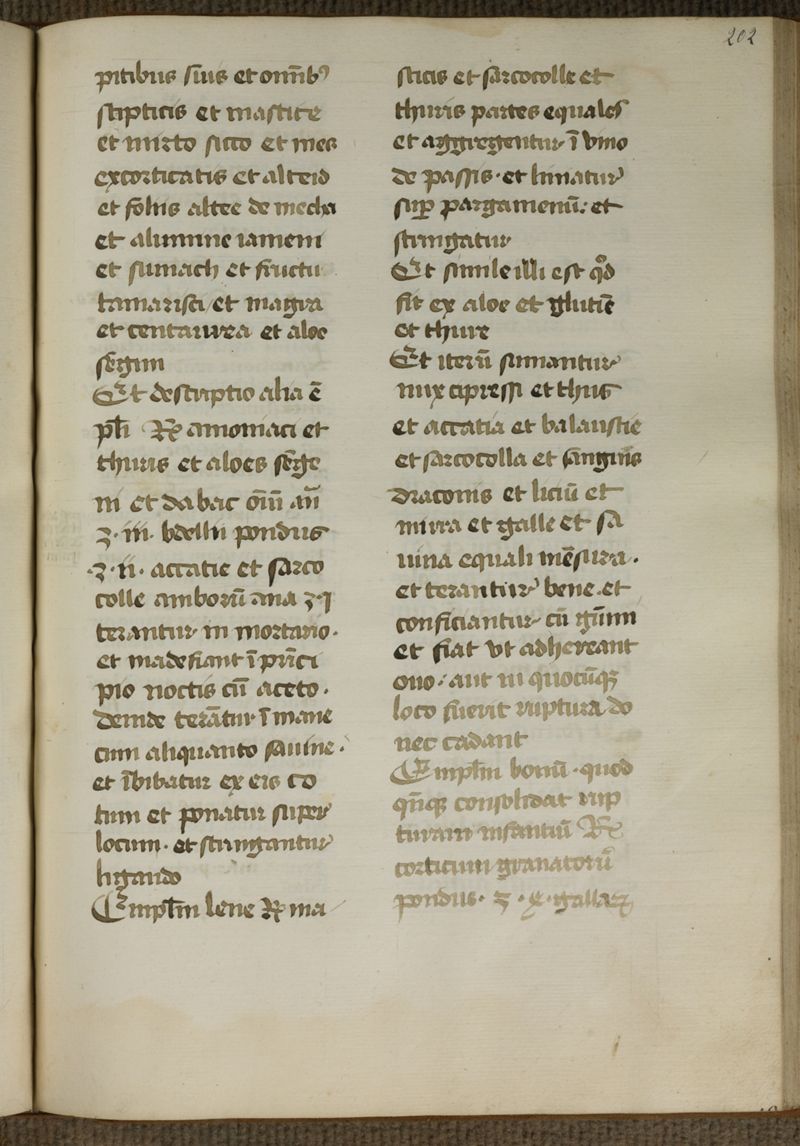 202
pitibus suis et om̄ibꝰ
stipticis et mastice
et mirto sicco et mes
excorticatis et alteid
et folus altee de mecha
et alumine iameni
et sumach et fructu
tamarisci et magra
et centaurea et aloe
Et descriptio alia ē
℞ amomaci et
thuris et aloes
ni et dabac oīū añ
ʒ · iii · bdellii pondus
· ʒ · ii · accatie et sarco
colle amborū ana ʒ · i
terantur in mortario ·
et madefiant ī prīci
pio noctis cū aceto ·
deinde terātur ī mane
cum aliquanto saluine ·
et ībibatur ex eis co
tum et ponatur super
locum · et stringantur
ligando
Emplm̄ lene ℞ ma
sticis et sarcocolle et
thuris partes equales
et aggregentur ī vino
de passis · et liniatur
suꝑ pargamenū : et
stringatur
Et simile illi est qd̓
fit ex aloe et glutiē
et thure
Et iterū sumantur
nux cipressi et thus
et accatia et balaustie
et sarcocolla et sanguis
draconis et liciū et
mirra et galle et sa
uina equali mēsura ·
et terantur bene · et
conficiantur cū gūmi
et fiat vt adhereant
ouo · aut in quocūqꝫ
loco fuerit ruptura do
nec cadant
Emplm̄ bonū · quod
qn̄qꝫ consolidat rup
turam infantiū ℞
corticum granatorū
pondus · ʒ · x · gallaꝝ